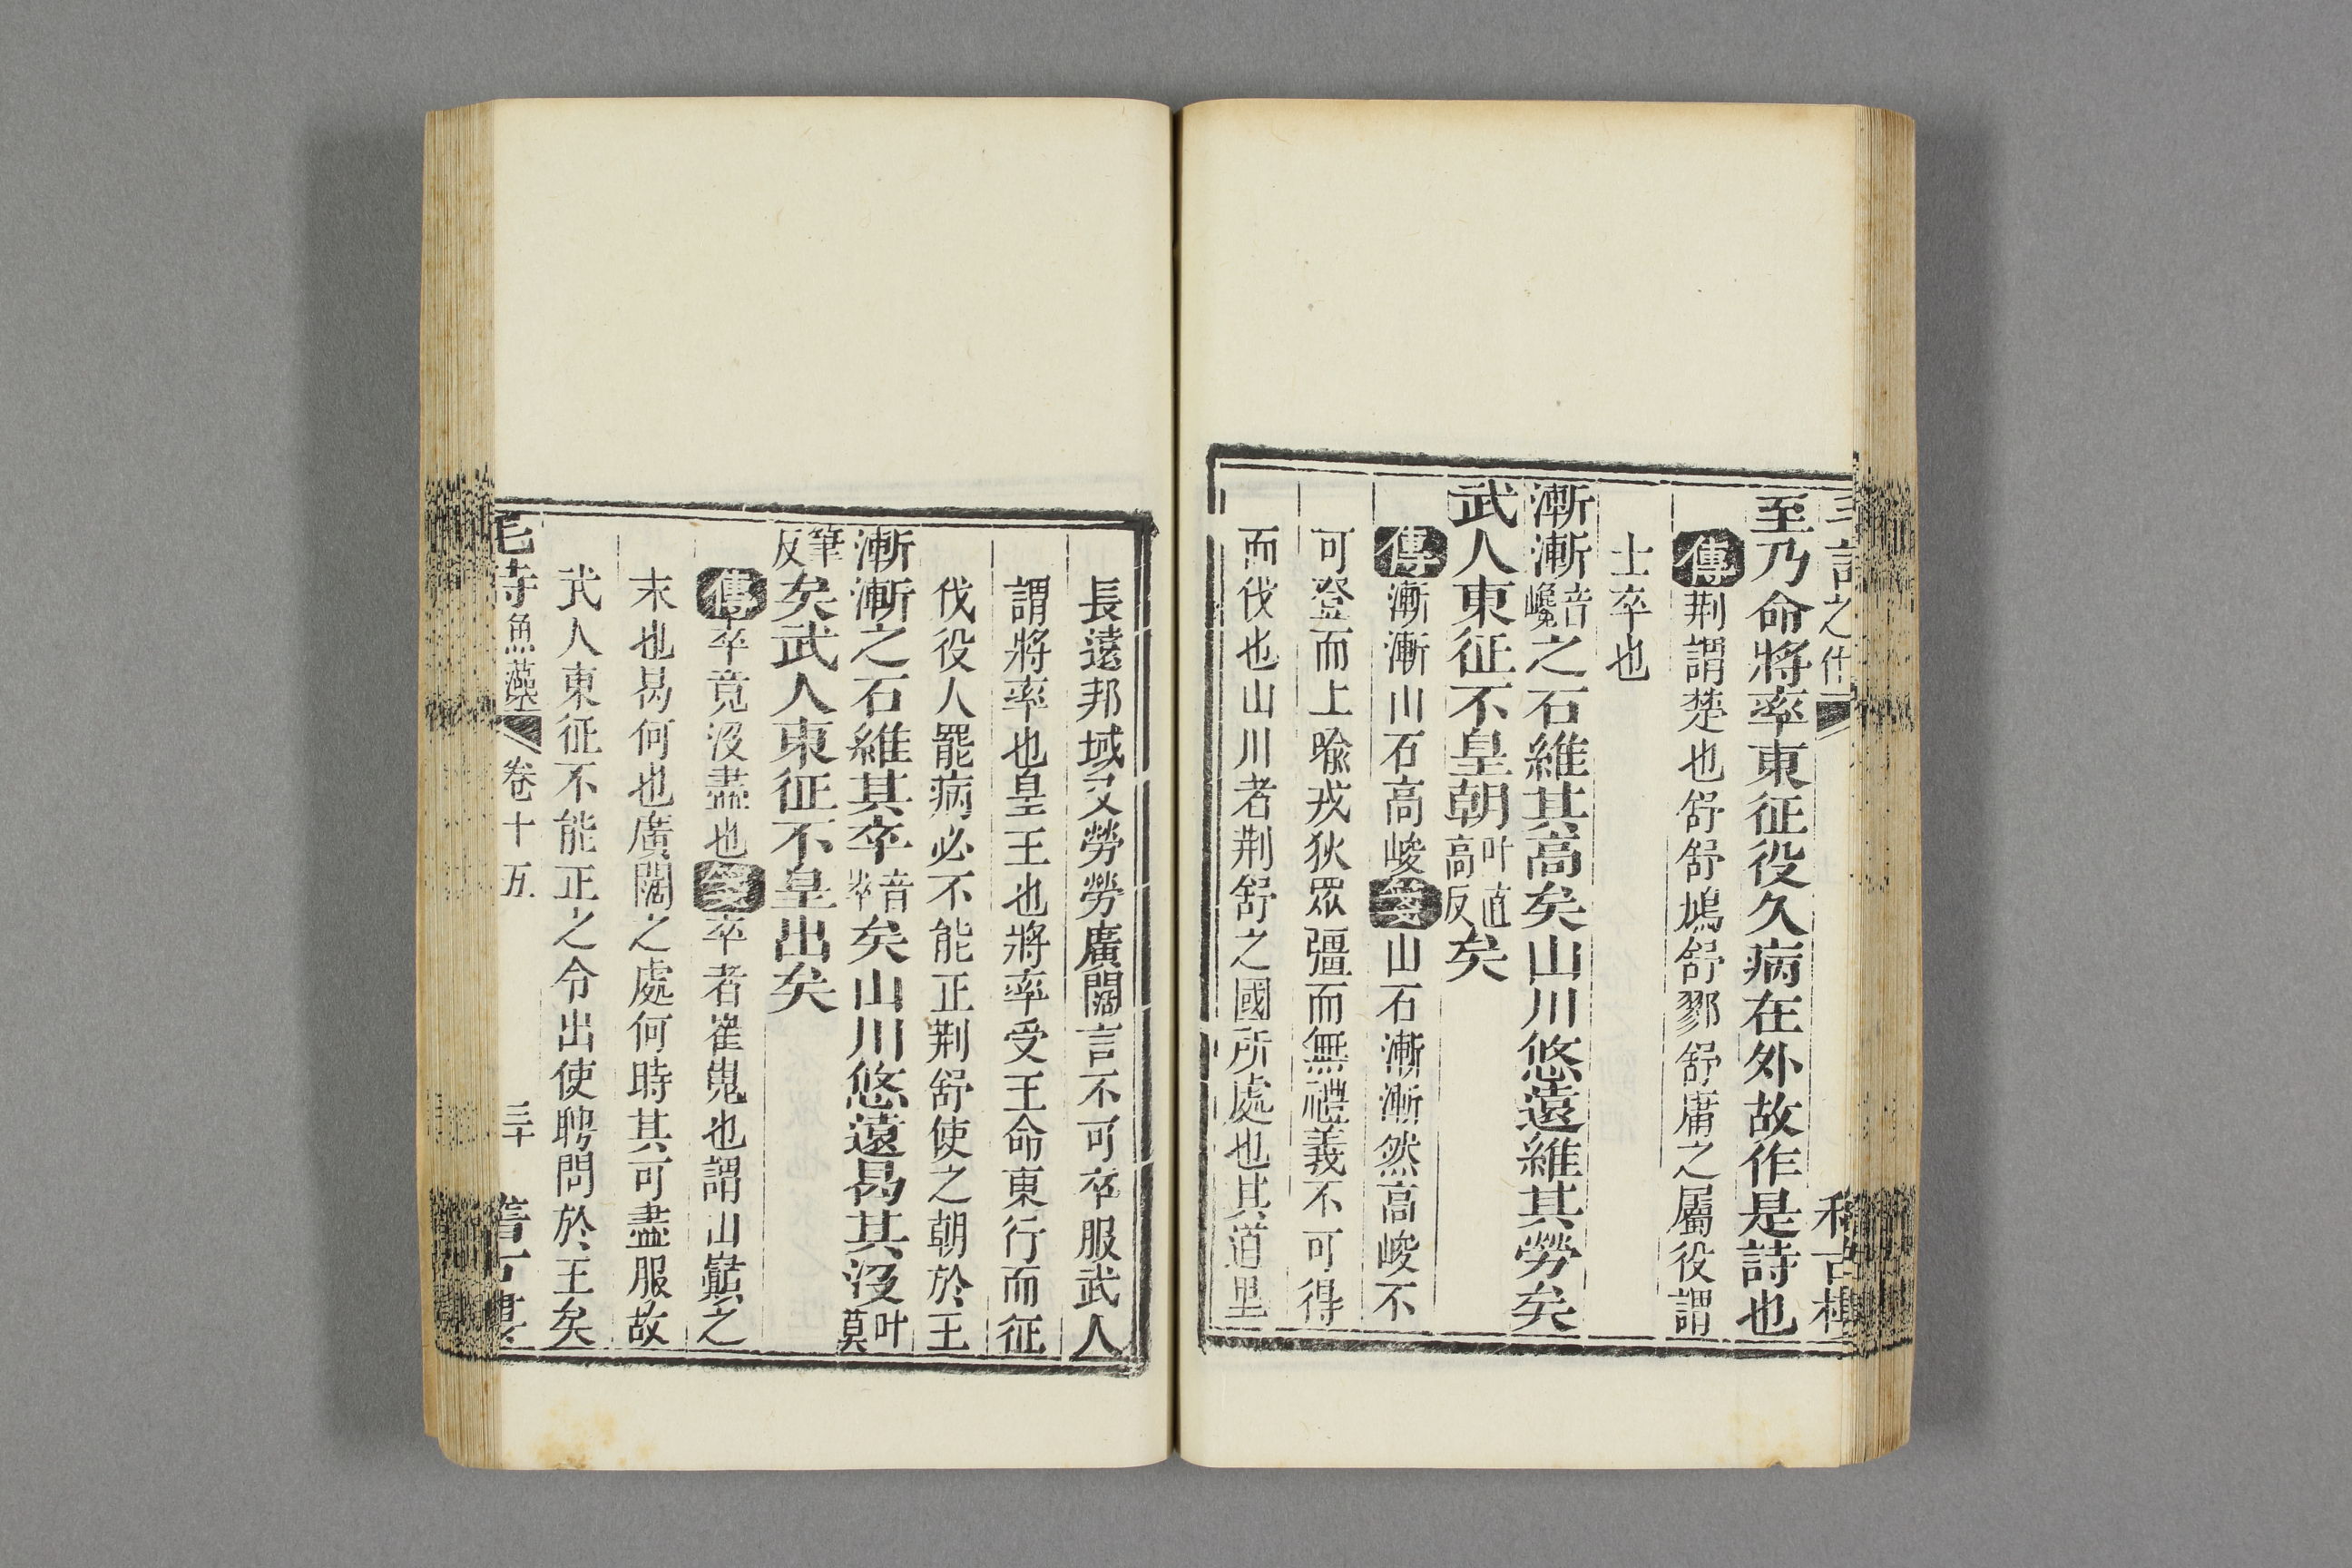 至乃命將率東征役久病在外故作是詩也
傳荆謂楚也舒舒鳩舒鄝舒庸之屬役謂
士卒也
漸漸音巉之石維其高矣山川悠遠維其勞矣
武人東征不皇朝叶直高反矣
傳漸漸山石高峻箋山石漸漸然高峻不
可登而上喻戎狄眾彊而無禮義不可得
而伐也山川者荆舒之國所處也其道里
長遠邦域又勞勞廣闊言不可卒服武人
謂將率也皇王也將率受王命東行而征
伐役人罷病必不能正荆舒使之朝於王
漸漸之石維其卒音崒矣山川悠遠曷其沒叶莫
筆反矣武人東征不皇出矣
傳卒竟沒盡也箋卒者崔嵬也謂山巔之
末也曷何也廣闊之處何時其可盡服故
武人東征不能正之令出使聘問於王矣
毛詩魚藻 卷十五 三十